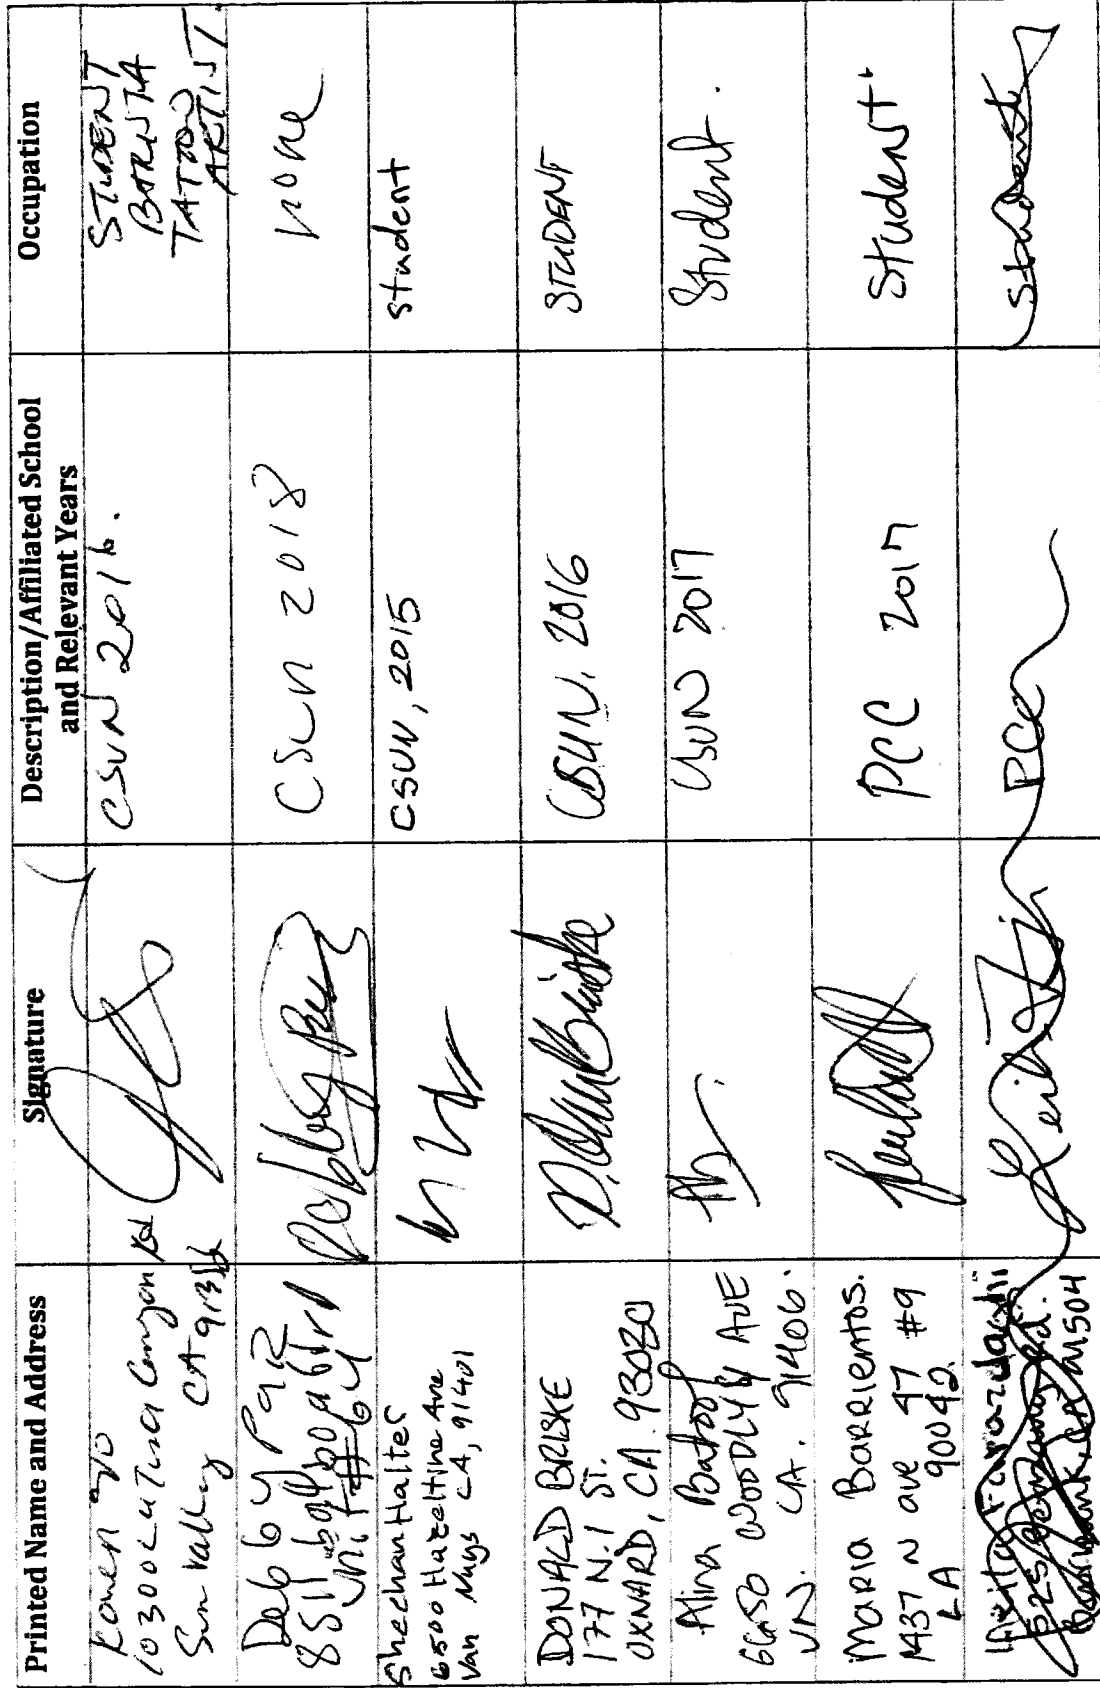 Printed Name and Address
Signature
Description/Affiliated School
and Relevant Years
Occupation
Karen
10300 La Tuna Canyon Rd
Sun Valley CA
CSUN 2016.
STUDENT
TATTOO
ARTIST.
Debby Paz
Unit #64
CSUN 2018
none
Sheehan Halter
6500 Hazeltine Ave
Van Nuys CA, 91401
CSUN, 2015
student
DONALD BRISKE
177 N. 1 ST.
OXNARD, CA. 93030
CSUN, 2016
STUDENT
Alina
6650 WOODLEY AVE
VN. CA. 91406.
CSUN 2017
Student.
Maria Barrientos.
1437 N ave 47 #9
LA 90042
PCC 2017
Student.
PCC
Student